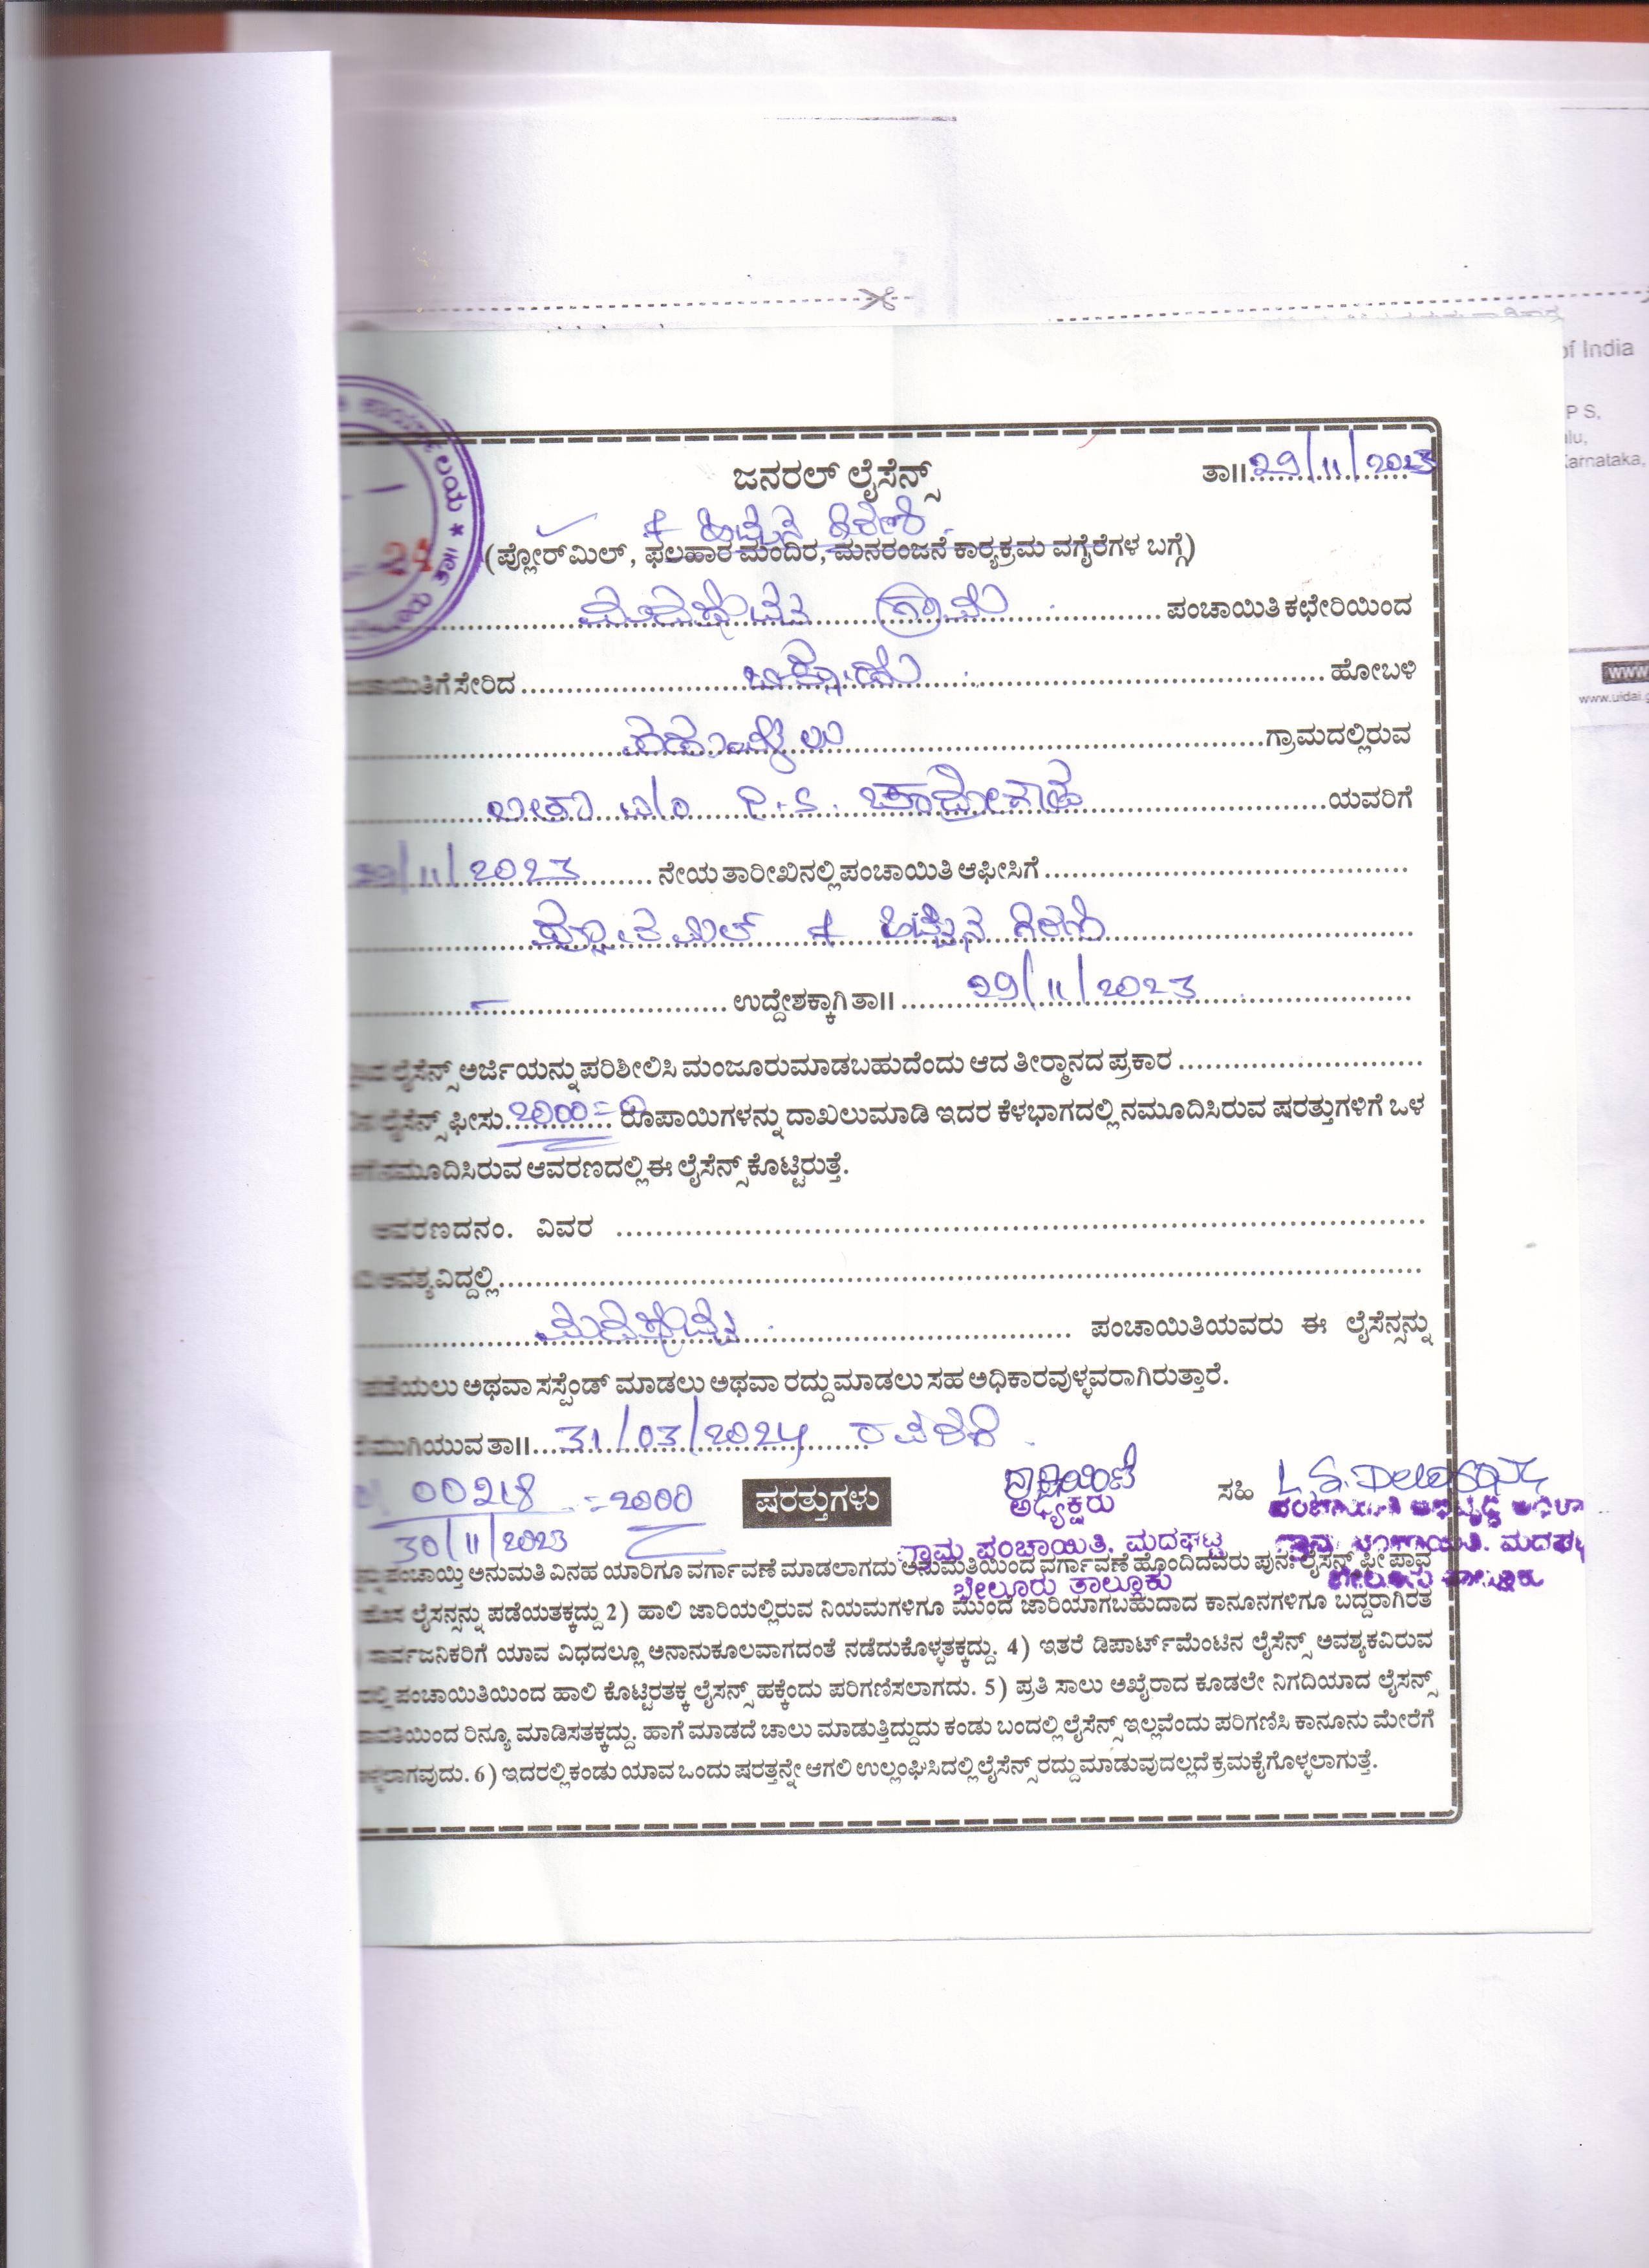 of India
P S,
Karnataka,
ಜನರಲ್ ಲೈಸೆನ್ಸ್
ತಾ॥ 29/11/2023
& ಹಿಟ್ಟಿನ ಗಿರಣಿ
(ಫ್ಲೋರ್‌ಮಿಲ್, ಫಲಹಾರ ಮಂದಿರ, ಮನರಂಜನೆ ಕಾರ್‍ಯಕ್ರಮ ವಗೈರೆಗಳ ಬಗ್ಗೆ)
ಗ್ರಾಮ ಪಂಚಾಯಿತಿ ಕಛೇರಿಯಿಂದ
ಸೇರಿದ ಹೋಬಳಿ
www
www.uidai.g
ಗ್ರಾಮದಲ್ಲಿರುವ
P.S. ಯವರಿಗೆ
29/11/2023 ನೇಯ ತಾರೀಖಿನಲ್ಲಿ ಪಂಚಾಯಿತಿ ಆಫೀಸಿಗೆ
& ಹಿಟ್ಟಿನ ಗಿರಣಿ
ಉದ್ದೇಶಕ್ಕಾಗಿ ತಾ॥ 29/11/2023
ಲೈಸೆನ್ಸ್ ಅರ್ಜಿಯನ್ನು ಪರಿಶೀಲಿಸಿ ಮಂಜೂರುಮಾಡಬಹುದೆಂದು ಆದ ತೀರ್‍ಮಾನದ ಪ್ರಕಾರ
ಲೈಸೆನ್ಸ್ ಫೀಸು 2000=0 ರೂಪಾಯಿಗಳನ್ನು ದಾಖಲುಮಾಡಿ ಇದರ ಕೆಳಭಾಗದಲ್ಲಿ ನಮೂದಿಸಿರುವ ಷರತ್ತುಗಳಿಗೆ ಒಳ
ನಮೂದಿಸಿರುವ ಆವರಣದಲ್ಲಿ ಈ ಲೈಸೆನ್ಸ್ ಕೊಟ್ಟಿರುತ್ತೆ.
ಆವರಣದ ನಂ. ವಿವರ
ಅವಶ್ಯವಿದ್ದಲ್ಲಿ
ಪಂಚಾಯಿತಿಯವರು ಈ ಲೈಸೆನ್ಸನ್ನು
ಪಡೆಯಲು ಅಥವಾ ಸಸ್ಪೆಂಡ್ ಮಾಡಲು ಅಥವಾ ರದ್ದು ಮಾಡಲು ಸಹ ಅಧಿಕಾರವುಳ್ಳವರಾಗಿರುತ್ತಾರೆ.
ಮುಗಿಯುವ ತಾ॥ 31/03/2024 ರವರೆಗೆ
00218 =2000
30/11/2023
ಷರತ್ತುಗಳು
ಸಹಿ
ಅಧ್ಯಕ್ಷರು
ಗ್ರಾಮ ಪಂಚಾಯಿತಿ, ಮದಘಟ್ಟ
ಬೇಲೂರು ತಾಲ್ಲೂಕು
ಪಂಚಾಯಿತಿ ಅಭಿವೃದ್ಧಿ
ಗ್ರಾಮ ಪಂಚಾಯಿತಿ. ಮದಘ
ಬೇಲೂರು ತಾಲ್ಲೂಕು
ಪಂಚಾಯ್ತಿ ಅನುಮತಿ ವಿನಹ ಯಾರಿಗೂ ವರ್ಗಾವಣೆ ಮಾಡಲಾಗದು ಅನುಮತಿಯಿಂದ ವರ್ಗಾವಣೆ ಹೊಂದಿದವರು ಪುನಃ ಲೈಸೆನ್ಸ್ ಫೀ ಪಾವ
ಹೊಸ ಲೈಸನ್ಸನ್ನು ಪಡೆಯತಕ್ಕದ್ದು 2) ಹಾಲಿ ಜಾರಿಯಲ್ಲಿರುವ ನಿಯಮಗಳಿಗೂ ಮುಂದೆ ಜಾರಿಯಾಗಬಹುದಾದ ಕಾನೂನಗಳಿಗೂ ಬದ್ದರಾಗಿರತ
ಸಾರ್ವಜನಿಕರಿಗೆ ಯಾವ ವಿಧದಲ್ಲೂ ಅನಾನುಕೂಲವಾಗದಂತೆ ನಡೆದುಕೊಳ್ಳತಕ್ಕದ್ದು. 4) ಇತರೆ ಡಿಪಾರ್ಟ್‌ಮೆಂಟಿನ ಲೈಸೆನ್ಸ್ ಅವಶ್ಯಕವಿರುವ
ಪಂಚಾಯಿತಿಯಿಂದ ಹಾಲಿ ಕೊಟ್ಟಿರತಕ್ಕ ಲೈಸನ್ಸ್ ಹಕ್ಕೆಂದು ಪರಿಗಣಿಸಲಾಗದು. 5) ಪ್ರತಿ ಸಾಲು ಅಖೈರಾದ ಕೂಡಲೇ ನಿಗದಿಯಾದ ಲೈಸನ್ಸ್
ರಿನ್ಯೂ ಮಾಡಿಸತಕ್ಕದ್ದು. ಹಾಗೆ ಮಾಡದೆ ಚಾಲು ಮಾಡುತ್ತಿದ್ದುದು ಕಂಡು ಬಂದಲ್ಲಿ ಲೈಸೆನ್ಸ್ ಇಲ್ಲವೆಂದು ಪರಿಗಣಿಸಿ ಕಾನೂನು ಮೇರೆಗೆ
6) ಇದರಲ್ಲಿ ಕಂಡು ಯಾವ ಒಂದು ಷರತ್ತನ್ನೇ ಆಗಲಿ ಉಲ್ಲಂಘಿಸಿದಲ್ಲಿ ಲೈಸೆನ್ಸ್ ರದ್ದು ಮಾಡುವುದಲ್ಲದೆ ಕ್ರಮಕೈಗೊಳ್ಳಲಾಗುತ್ತೆ.